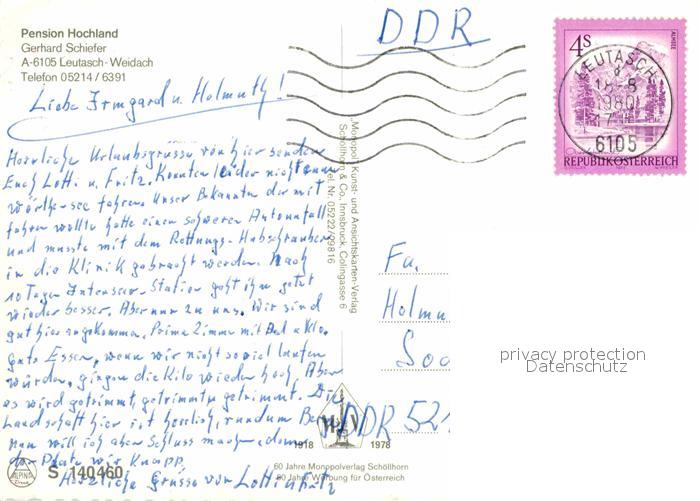 Pension Hochland
Gerhard Schiefer
A-6105 Leutasch-Weidach
Telefon 05214 / 6391
DDR
4S
ALMSEE
REPUBLIK ÖSTERREICH
LEUTASCH
18-8
1980
6105
Liebe Irmgard u. Helmuth!
Herrliche Urlaubsgrüsse von hier senden
Euch Lott. u. Fritz. Konnten leider nicht
wörthersee fahren. Unser Bekannter der mit
fahren wollte hatte einen schweren Autounfall
und musste mit dem Rettungs-Hubschrauber
in die Klinik gebracht werden. Nach
10 Tagen Intensiv-Station geht ihm jetzt
wieder besser. Aber nun zu uns. Wir sind
gut hier angekommen. Prima Zimmer mit Bad u. Klo.
Gutes Essen, wenn wir nicht soviel laufen
würden, gingen die Kilo wieder hoch. Aber
es wird getrimmt, getrimmt u. getrimmt. Die
Landschaft hier ist herrlich, rundum Berge
Nun will ich aber Schluss machen, denn
der Platz wir knapp.
Herzliche Grüsse von Lotti u. Fritz
„Monopol" Kunst- und Ansichtskarten-Verlag
Schöllhorn & Co., Innsbruck, Colingasse 6
Tel. Nr. 05222/29816
Fa.
Helmu
DDR 521
privacy protection
Datenschutz
1918 1978
60 Jahre Monopolverlag Schöllhorn
60 Jahre Werbung für Österreich
ALPINA
Druck
S 140460